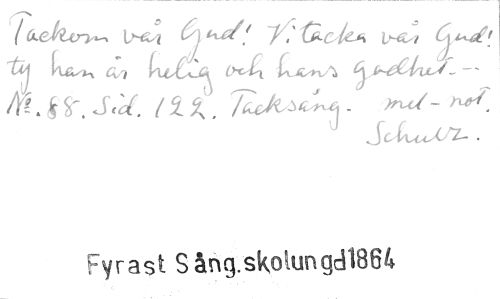 Tackom vår Gud! Vi tacka vår Gud!
ty han är helig och hans godhet.--
No. 88. Sid. 122. Tacksång. mel-not.
Schulz.
Fyrast Sång.skolungd1864